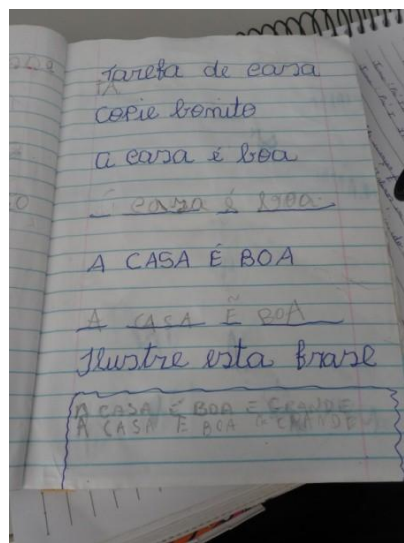 Tarefa de casa
TA
copie bonito
a casa é boa
É casa é boa.
A CASA É BOA
A CASA É BOA
Ilustre esta frase
A CASA É BOA E GRANDE
A CASA E BOA E GRANDE